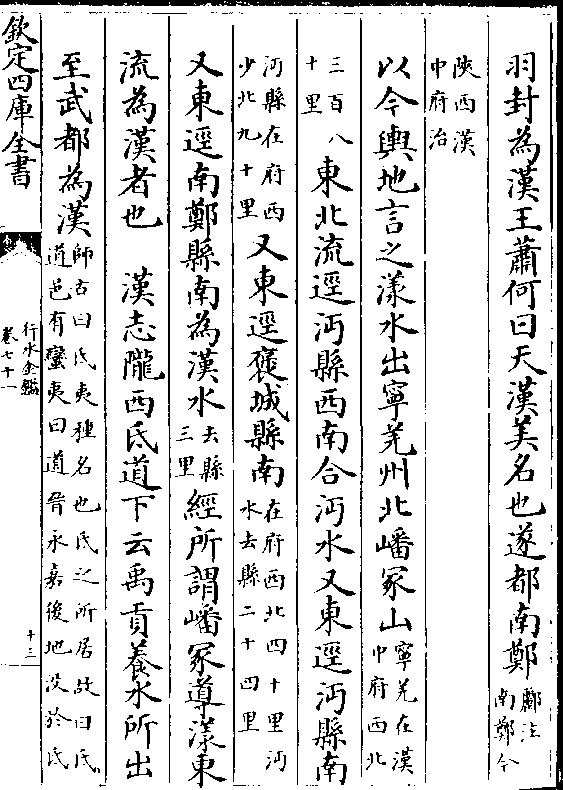 羽封為漢王蕭何曰天漢美名也遂都南鄭酈注南鄭今
陜西漢中府治
以今輿地言之漾水出寧羌州北嶓冢山寧羌在漢中府西北
三百八十里東北流逕沔縣西南合沔水又東逕沔縣南
沔縣在府西少北九十里又東逕褒城縣南在府西北四十里沔水去縣二十四里
又東逕南鄭縣南為漢水去縣三里經所謂嶓冢導漾東
流為漢者也　漢志隴西氐道下云禹貢養水所出
至武都為漢師古曰氐夷種名也氐之所居故曰氐道邑有蠻夷曰道晉永嘉後地没於氐
欽定四庫全書
行水金鑑
卷七十一
十三